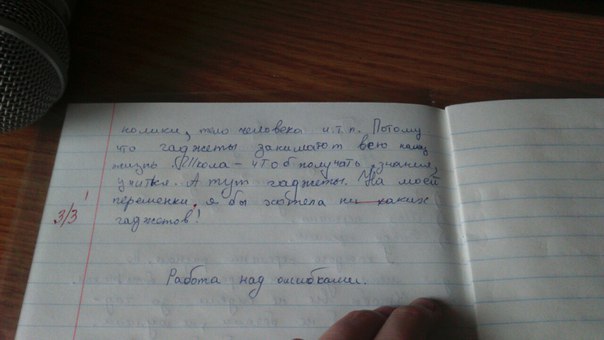 нолики, тело человека и.т.п. Потому
что гаджеты занимают всю нашу
жизнь. Школа – чтоб получать знания,
учиться. А тут гаджеты. На моей
переменки, я бы хотела ни каких
гаджетов!
3/3 !
Работа над ошибками.